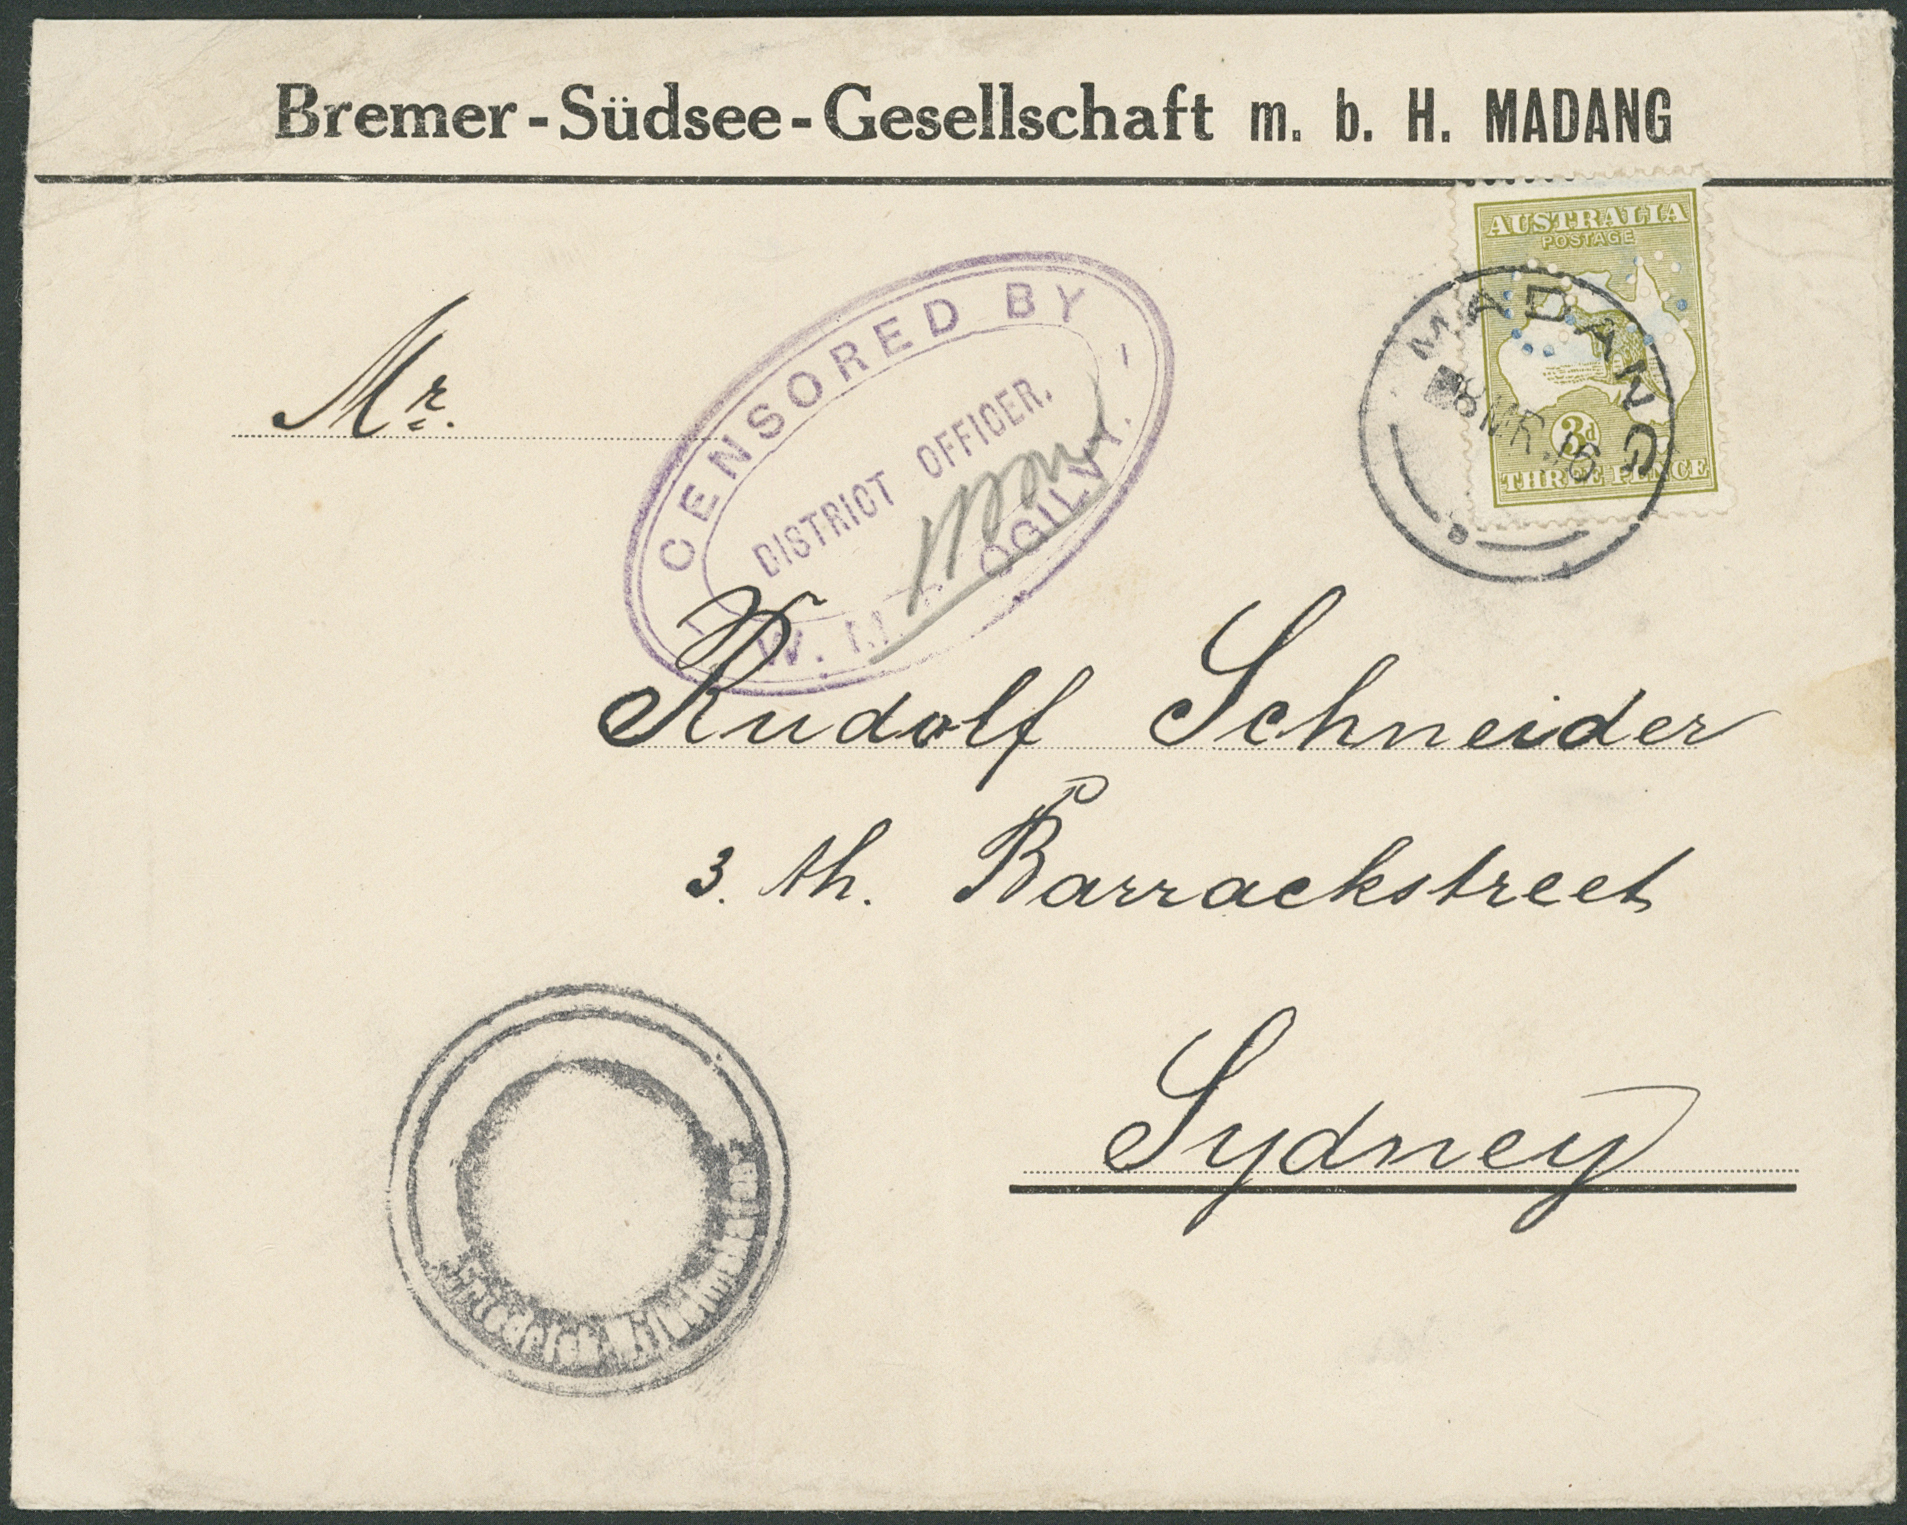 Bremer-Südsee-Gesellschaft m. b. H. MADANG
AUSTRALIA
POSTAGE
3d
THREE PENCE
MADANG
8 MR. 16
Mr.
CENSORED BY
DISTRICT OFFICER.
W. M. OGILVY.
Rudolf Schneider
3. th. Barrackstreet
Sydney
Friedrich-Wilhelmshafen